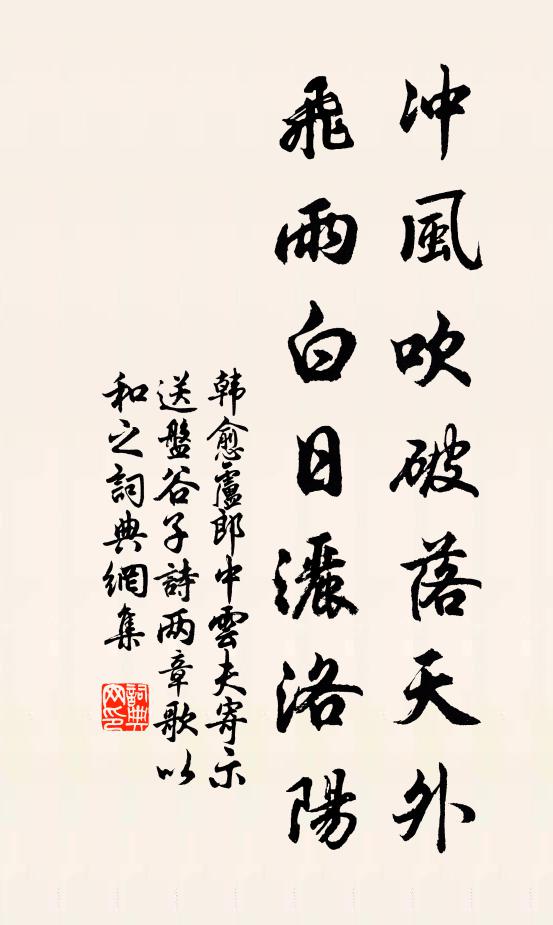 冲風吹破落天外
飛雨白日灑洛陽
韩愈盧郎中雲夫寄示
送盤谷子詩两章歌以
和之詞典網集
詞典
网印